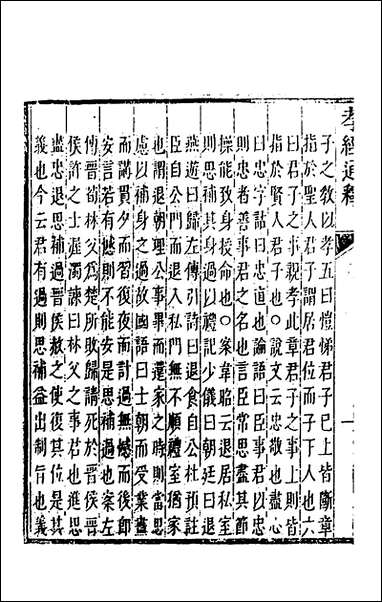 孝經通釋
子之敎以孝五曰愷悌君子已上皆斷章
指於聖人君子謂居君位而子下人也六
曰君子之事親孝此章君子之事上則皆
指於賢人君子也○說文云忠敬也盡心
曰忠字詁曰忠直也論語曰臣事君以忠
則忠者善事君之名也言臣常思盡其節
操能致身授命也○案韋昭云退居私室
則思補其身過以禮記少儀曰朝廷曰退
燕遊曰歸左傳引詩曰退食自公杜預註
臣自公門而退入私門無不順禮室猶家
也謂退朝理公事畢而還家之時則當思
慮以補身之過故國語曰士朝而受業晝
而講貫夕而習復夜而計過無憾而後卽
安言若有憾則不能安是思補過也案左
傳晉荀林父爲楚所敗歸請死於晉晉
侯許之士渥濁諫曰林父之事君也進思
盡忠退思補過晉侯赦之使復其位是其
義也今云君有過則思補益出制旨也義